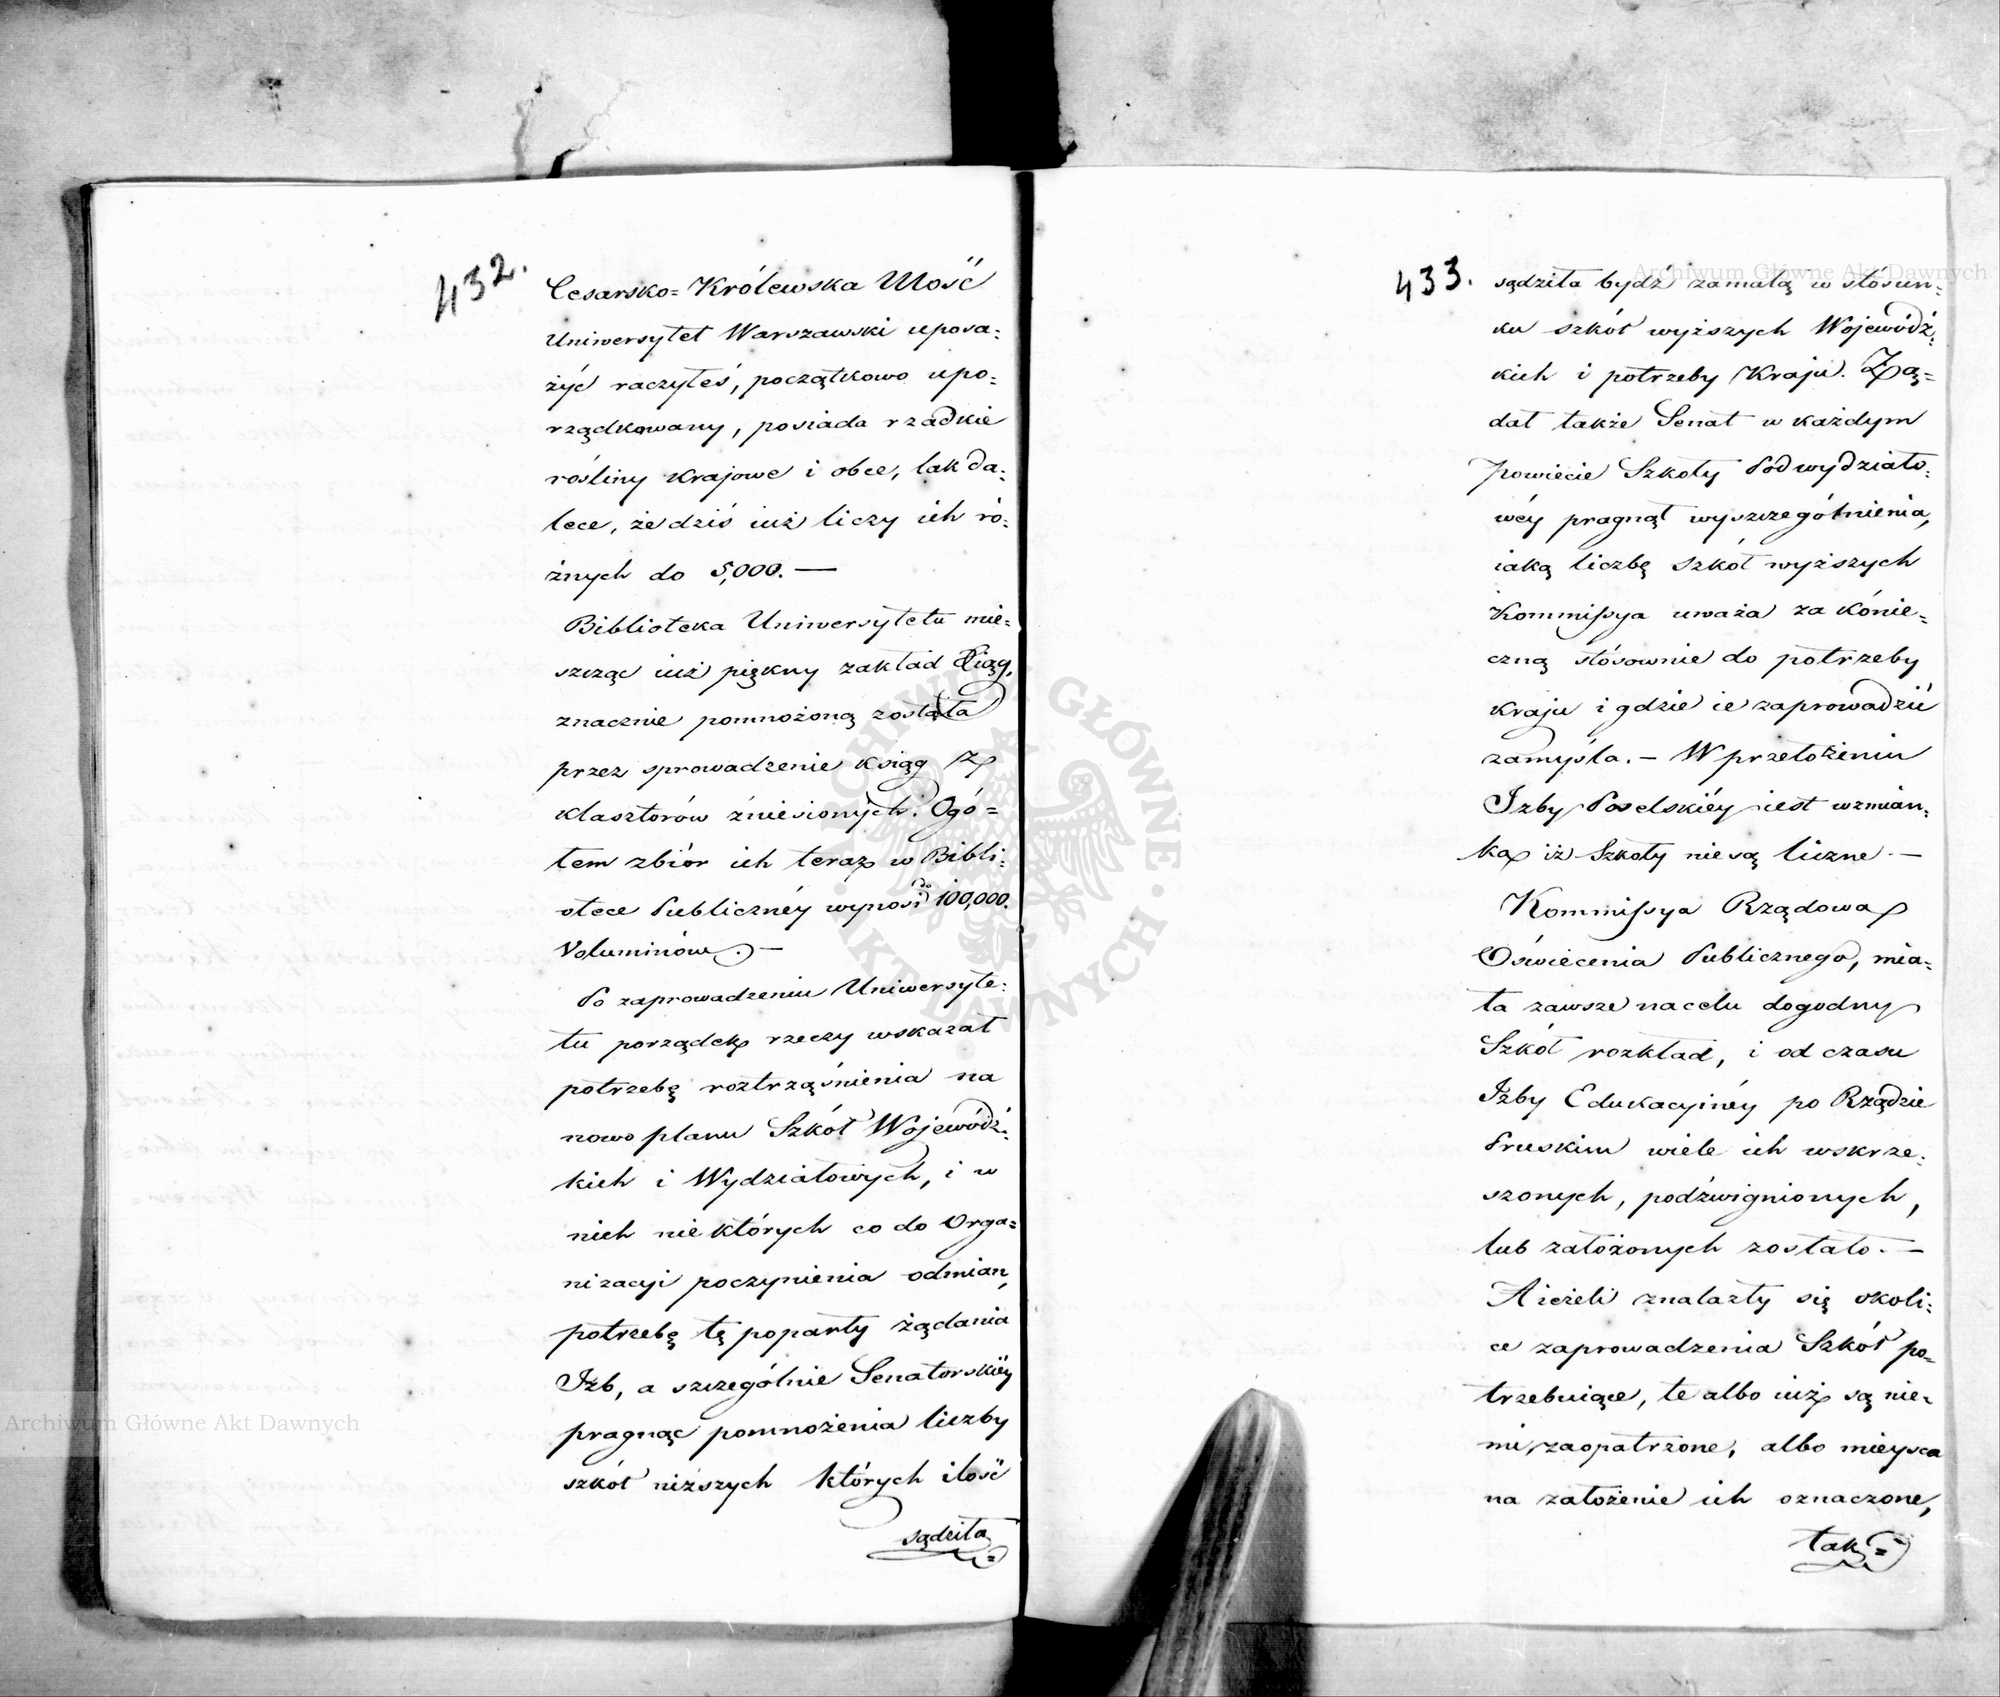 432.
Cesarsko=Królewska Mość
Uniwersytet Warszawski uposa=
żyć raczyłeś, początkowo upo=
rządkowany, posiada rzadkie
rośliny krajowe i obce, tak da=
lece, że dziś iuż liczy ich ró=
żnych do 5,000. —
Biblioteka Uniwersytetu mie=
szcząc iuż piękny zakład Xiąg,
znacznie pomnożoną została
przez sprowadzenie ksiąg z
klasztorów zniesionych. Ogó=
łem zbiór ich teraz w Bibli=
otece Publicznéy wynosi do 100,000.
Voluminów. —
Po zaprowadzeniu Uniwersyte=
tu porządek rzeczy wskazał
potrzebę roztrząśnienia na
nowo planu Szkół Wojewódz=
kich i Wydziałowych, i w
nich niektórych co do Orga=
nizacyi poczynienia odmian,
potrzebę tę poparły żądania
Izb, a szczególnie Senatorskiéy
pragnąc pomnożenia liczby
szkół niższych których ilość
sądziła=
433.
sądziła bydź zamałą w stósun=
ku szkół wyższych Wojewódz=
kich i potrzeby Kraju. Żą=
dał także Senat w każdym
Powiecie Szkoły Podwydziało=
wéy pragnął wyszczególnienia,
iaką liczbę Szkół wyższych
Kommissya uważa za kónie=
czną stósownie do potrzeby
kraju i gdzie ie zaprowadzić
zamyśla. — W przełożeniu
Izby Poselskiéy iest wzmian=
ka iż Szkoły nie są liczne. —
Kommissya Rządowa
Oświecenia Publicznego, mia=
ła zawsze na celu dogodny
Szkół rozkład, i od czasu
Izby Edukacyinéy po Rządzie
Pruskim wiele ich wskrze=
szonych, podźwignionych,
lub założonych zostało. —
A ieżeli znalazły się okoli=
ce zaprowadzenia Szkół po=
trzebuiące, te albo iuż są nie=
mi zaopatrzone, albo mieysca
na założenie ich oznaczone,
tak=
Archiwum Główne Akt Dawnych
Archiwum Główne Akt Dawnych
ARCHIWUM GŁÓWNE · AKT DAWNYCH ·